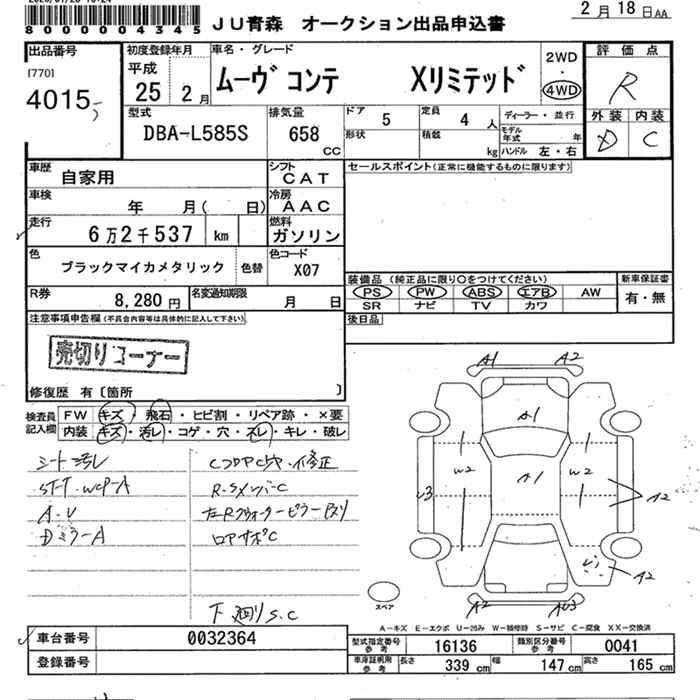 8000004345
JU青森 オークション出品申込書
2月18日AA
出品番号
[770]
4015
初度登録年月
平成
25 2月
車名・グレード
ムーヴ コンテ Xリミテッド
2WD
・
4WD
評価点
R
外装 内装
D C
型式
DBA-L585S
排気量
658
CC
ドア 5
形状
定員 4 人
積載 kg
ディーラー・並行
モデル年式 年
ハンドル 左・右
車歴
自家用
シフト
CAT
車検
年 月( 日)
冷房
AAC
走行
6万2千537 km
燃料
ガソリン
色
ブラックマイカメタリック
色替
色コード
X07
R券
8,280円
名変通知期限
月 日
セールスポイント(正常に機能するものに限ります)
装備品(純正品に限り○をつけてください)
PS PW ABS エアB AW
SR ナビ TV カワ
新車保証書
有・無
後日品
注意事項申告欄(不具合内容等は具体的に記入して下さい)
売切りコーナー
修復歴 有〔箇所 〕
検査員記入欄
FW キズ・飛石・ヒビ割・リペア跡・×要
内装 キズ・汚レ・コゲ・穴・スレ・キレ・破レ
シート汚レ
A.V
DミラーA
下廻りS.C
A1 A2
A1
A1
W2 W2
A2
A2
A2
スペア
A-キズ E-エクボ U-凹み W-補修跡 S-サビ C-腐食 XX-交換済
車台番号 0032364
登録番号
型式指定番号参考 16136
類別区分番号参考 0041
車庫証明用参考 長さ 339cm 幅 147cm 高さ 165cm